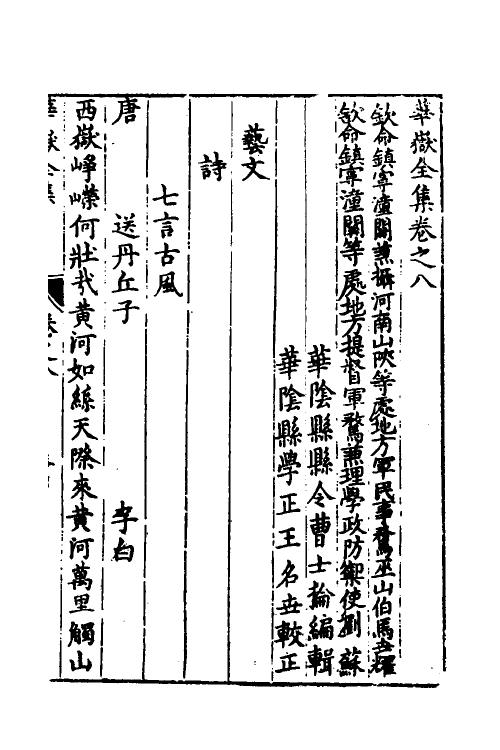 華嶽全集卷之八
欽命鎮寧潼關兼攝河南山陝等處地方軍民事務巫山伯馬世耀
欽命鎮寧潼關等處地方提督軍務兼理學政防禦使劉蘇
華陰縣縣令曹士掄編輯
華陰縣學正王名世較正
藝文
詩
七言古風
唐 送丹丘子 李白
西嶽崢嶸何壯哉黄河如絲天際來黄河萬里觸山